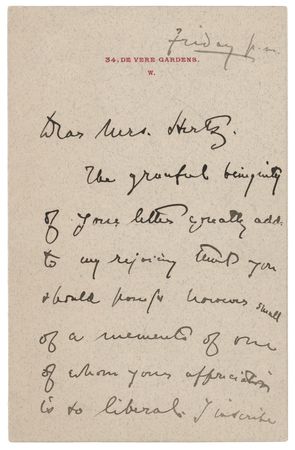 Friday p.m.
34, DE VERE GARDENS.
W.
Dear Mrs. Hertz.
The graceful benignity
of your letter greatly adds
to my rejoicing that you
should possess however small
of a memento of one
of whom your appreciation
is so liberal. I inscribe